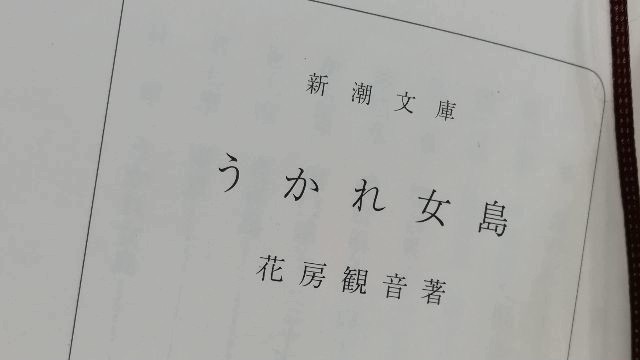 新潮文庫
うかれ女島
花房観音著